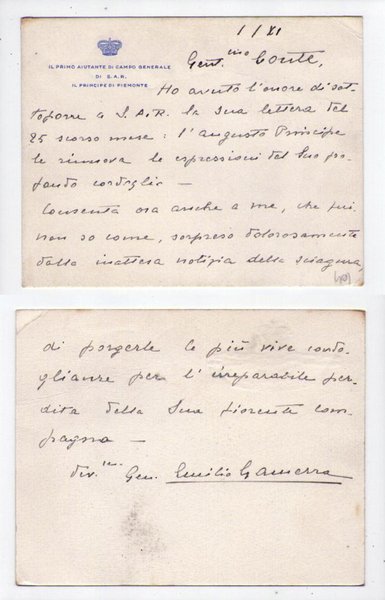 1/XI
IL PRIMO AIUTANTE DI CAMPO GENERALE
DI S.A.R.
IL PRINCIPE DI PIEMONTE
Gent.mo Conte,
Ho avuto l'onore di sot-
toporre a S.A.R. la Sua lettera del
25 scorso mese: l'augusto Principe
Le rinnova le espressioni del Suo pro-
fondo cordoglio —
Consenta ora anche a me, che fui
non so come, sorpreso dolorosamente
dalla inattesa notizia della sciagura,
di porgerle le più vive condo-
glianze per l'irreparabile per-
dita della Sua fiorente com-
pagna —
dev.mo Gen. Emilio Gamerra